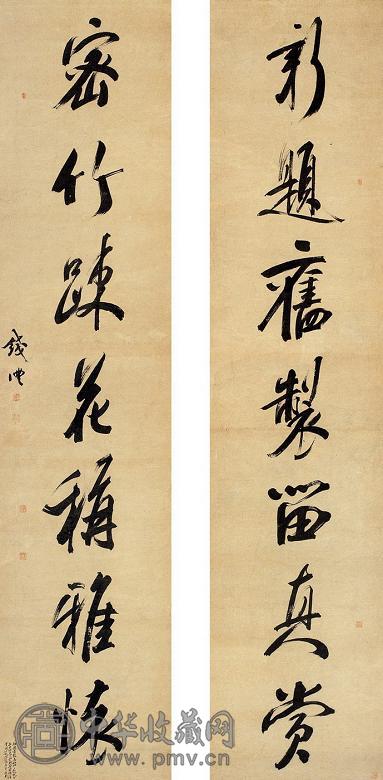 新題舊製留真賞
密竹疎花稱雅懷
錢灃
中华收藏网
www.pmv.cn